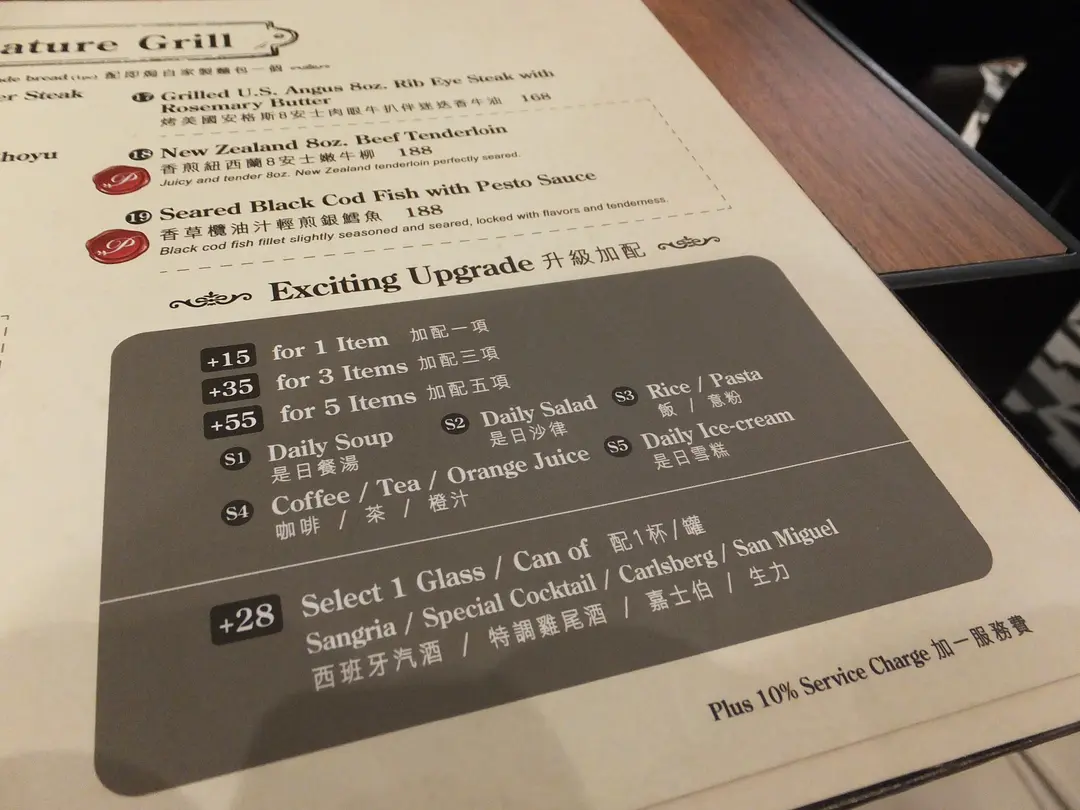 ature Grill
de bread (1pc) 配即焗自家製麵包一個
er Steak
hoyu
17 Grilled U.S. Angus 8oz. Rib Eye Steak with
Rosemary Butter
烤美國安格斯8安士肉眼牛扒伴迷迭香牛油 168
18 New Zealand 8oz. Beef Tenderloin
香煎紐西蘭8安士嫩牛柳 188
Juicy and tender 8oz. New Zealand tenderloin perfectly seared.
19 Seared Black Cod Fish with Pesto Sauce
香草欖油汁輕煎銀鱈魚 188
Black cod fish fillet slightly seasoned and seared, locked with flavors and tenderness.
Exciting Upgrade 升級加配
+15 for 1 Item 加配一項
+35 for 3 Items 加配三項
+55 for 5 Items 加配五項
S1 Daily Soup S2 Daily Salad S3 Rice / Pasta
是日餐湯 是日沙律 飯 / 意粉
S4 Coffee / Tea / Orange Juice S5 Daily Ice-cream
咖啡 / 茶 / 橙汁 是日雪糕
+28 Select 1 Glass / Can of 配1杯/罐
Sangria / Special Cocktail / Carlsberg / San Miguel
西班牙汽酒 / 特調雞尾酒 / 嘉士伯 / 生力
Plus 10% Service Charge 加一服務費